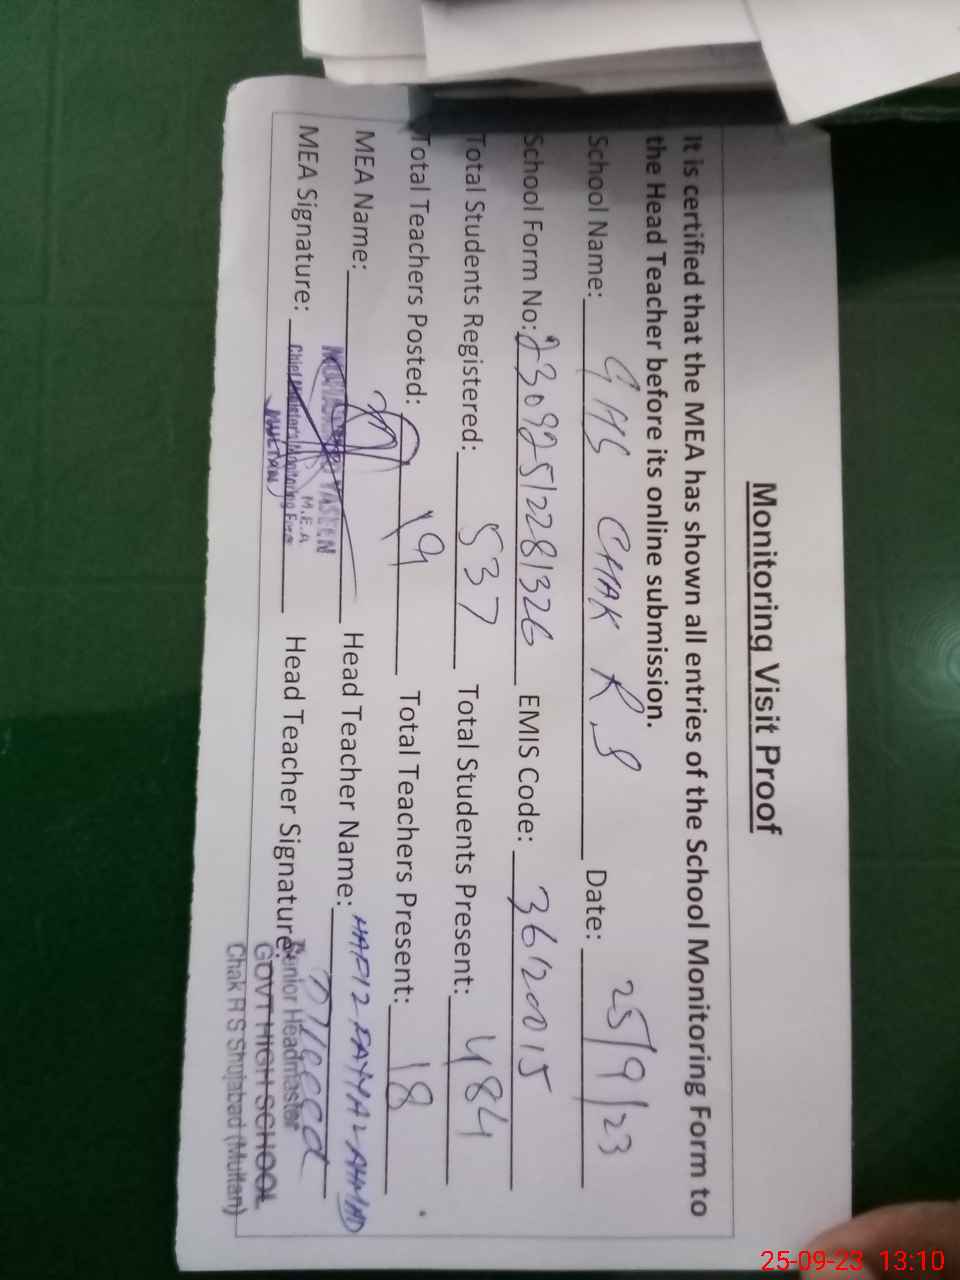 Monitoring Visit Proof
It is certified that the MEA has shown all entries of the School Monitoring Form to
the Head Teacher before its online submission.
School Name: GHS CHAK R S Date: 25/9/23
School Form No: 23092512281326 EMIS Code: 36120015
Total Students Registered: 537 Total Students Present: 484
Total Teachers Posted: 19 Total Teachers Present: 18
MEA Name: YASEEN Head Teacher Name: HAFIZ FAYYAZ AHMAD
M.E.A
MEA Signature: Chief Minister's Monitoring Force Head Teacher Signature:
MULTAN
Senior Headmaster
GOVT HIGH SCHOOL
Chak R S Shujabad (Multan)
25-09-23 13:10